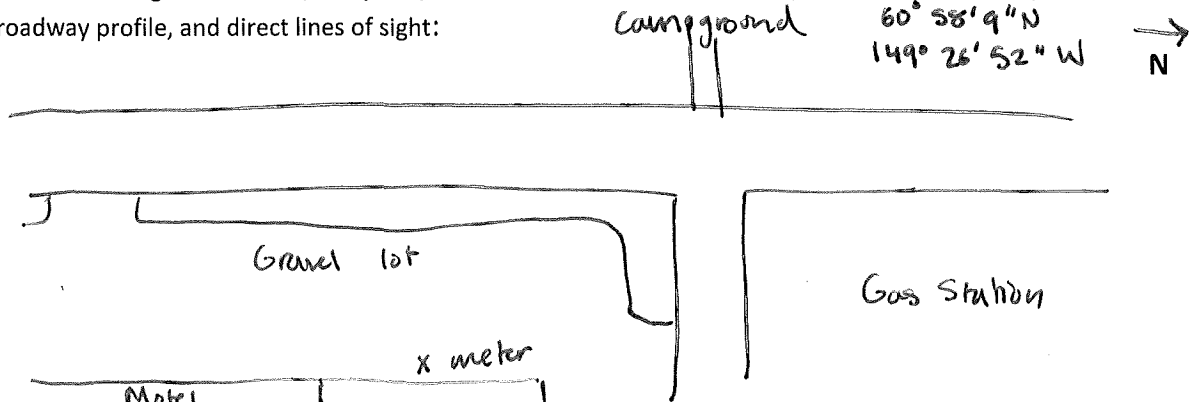 roadway profile, and direct lines of sight:
Campground
60° 58' 9" N
149° 26' 52" W
N
Gravel lot
Gas Station
x meter
Motel